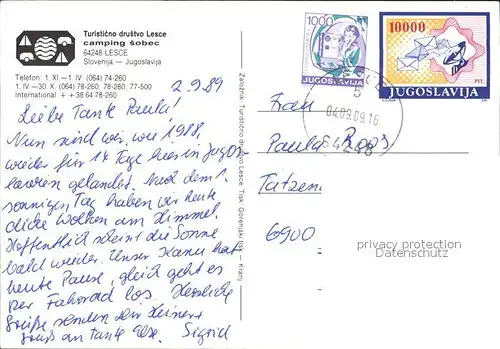 Turistično društvo Lesce
camping šobec
64248 LESCE
Slovenija — Jugoslavija
Telefon: 1. XI.—1 IV. (064) 74-260
1. IV.—30. X. (064) 78-260, 78-280, 77-500
International + +38 64 78-260
2.9.89
Liebe Tante Paula!
Nun sind wir, wie 1988,
wieder für 14 Tage hier in Jugos-
lawien gelandet. Nach dem 1.
sonnigen Tag haben wir heute
dicke Wolken am Himmel.
Hoffentlich scheint die Sonne
bald wieder. Unser Kanu hat
heute Pause, gleich geht es
per Fahrrad los. Herzliche
Grüße senden dir Heiner
Gruß an Tante Else. Sigrid
Založnik: Turistično društvo Lesce, Tisk: Gorenjski tisk — Kranj
1000
JUGOSLAVIJA
10000
PTT
JUGOSLAVIJA
04.09.89.16
64248
Frau
Paula Roos
Tatzen
6900
privacy protection
Datenschutz